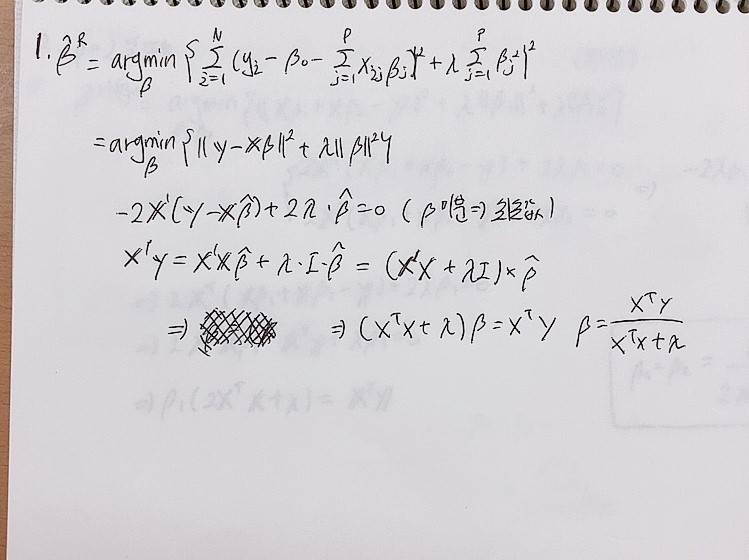 1. β̂ᴿ = argmin_β { Σ_{i=1}^{N} (y_i - β_0 - Σ_{j=1}^{P} x_{ij} β_j)² + λ Σ_{j=1}^{P} β_j² }²
= argmin_β { ||y - Xβ||² + λ||β||² }
-2X'(y - Xβ̂) + 2λ·β̂ = 0 (β미분 => 최솟값)
XᵀY = X'Xβ̂ + λ·I·β̂ = (X'X + λI) × β̂
=> => (XᵀX + λ)β = XᵀY β = XᵀY / XᵀX + λ